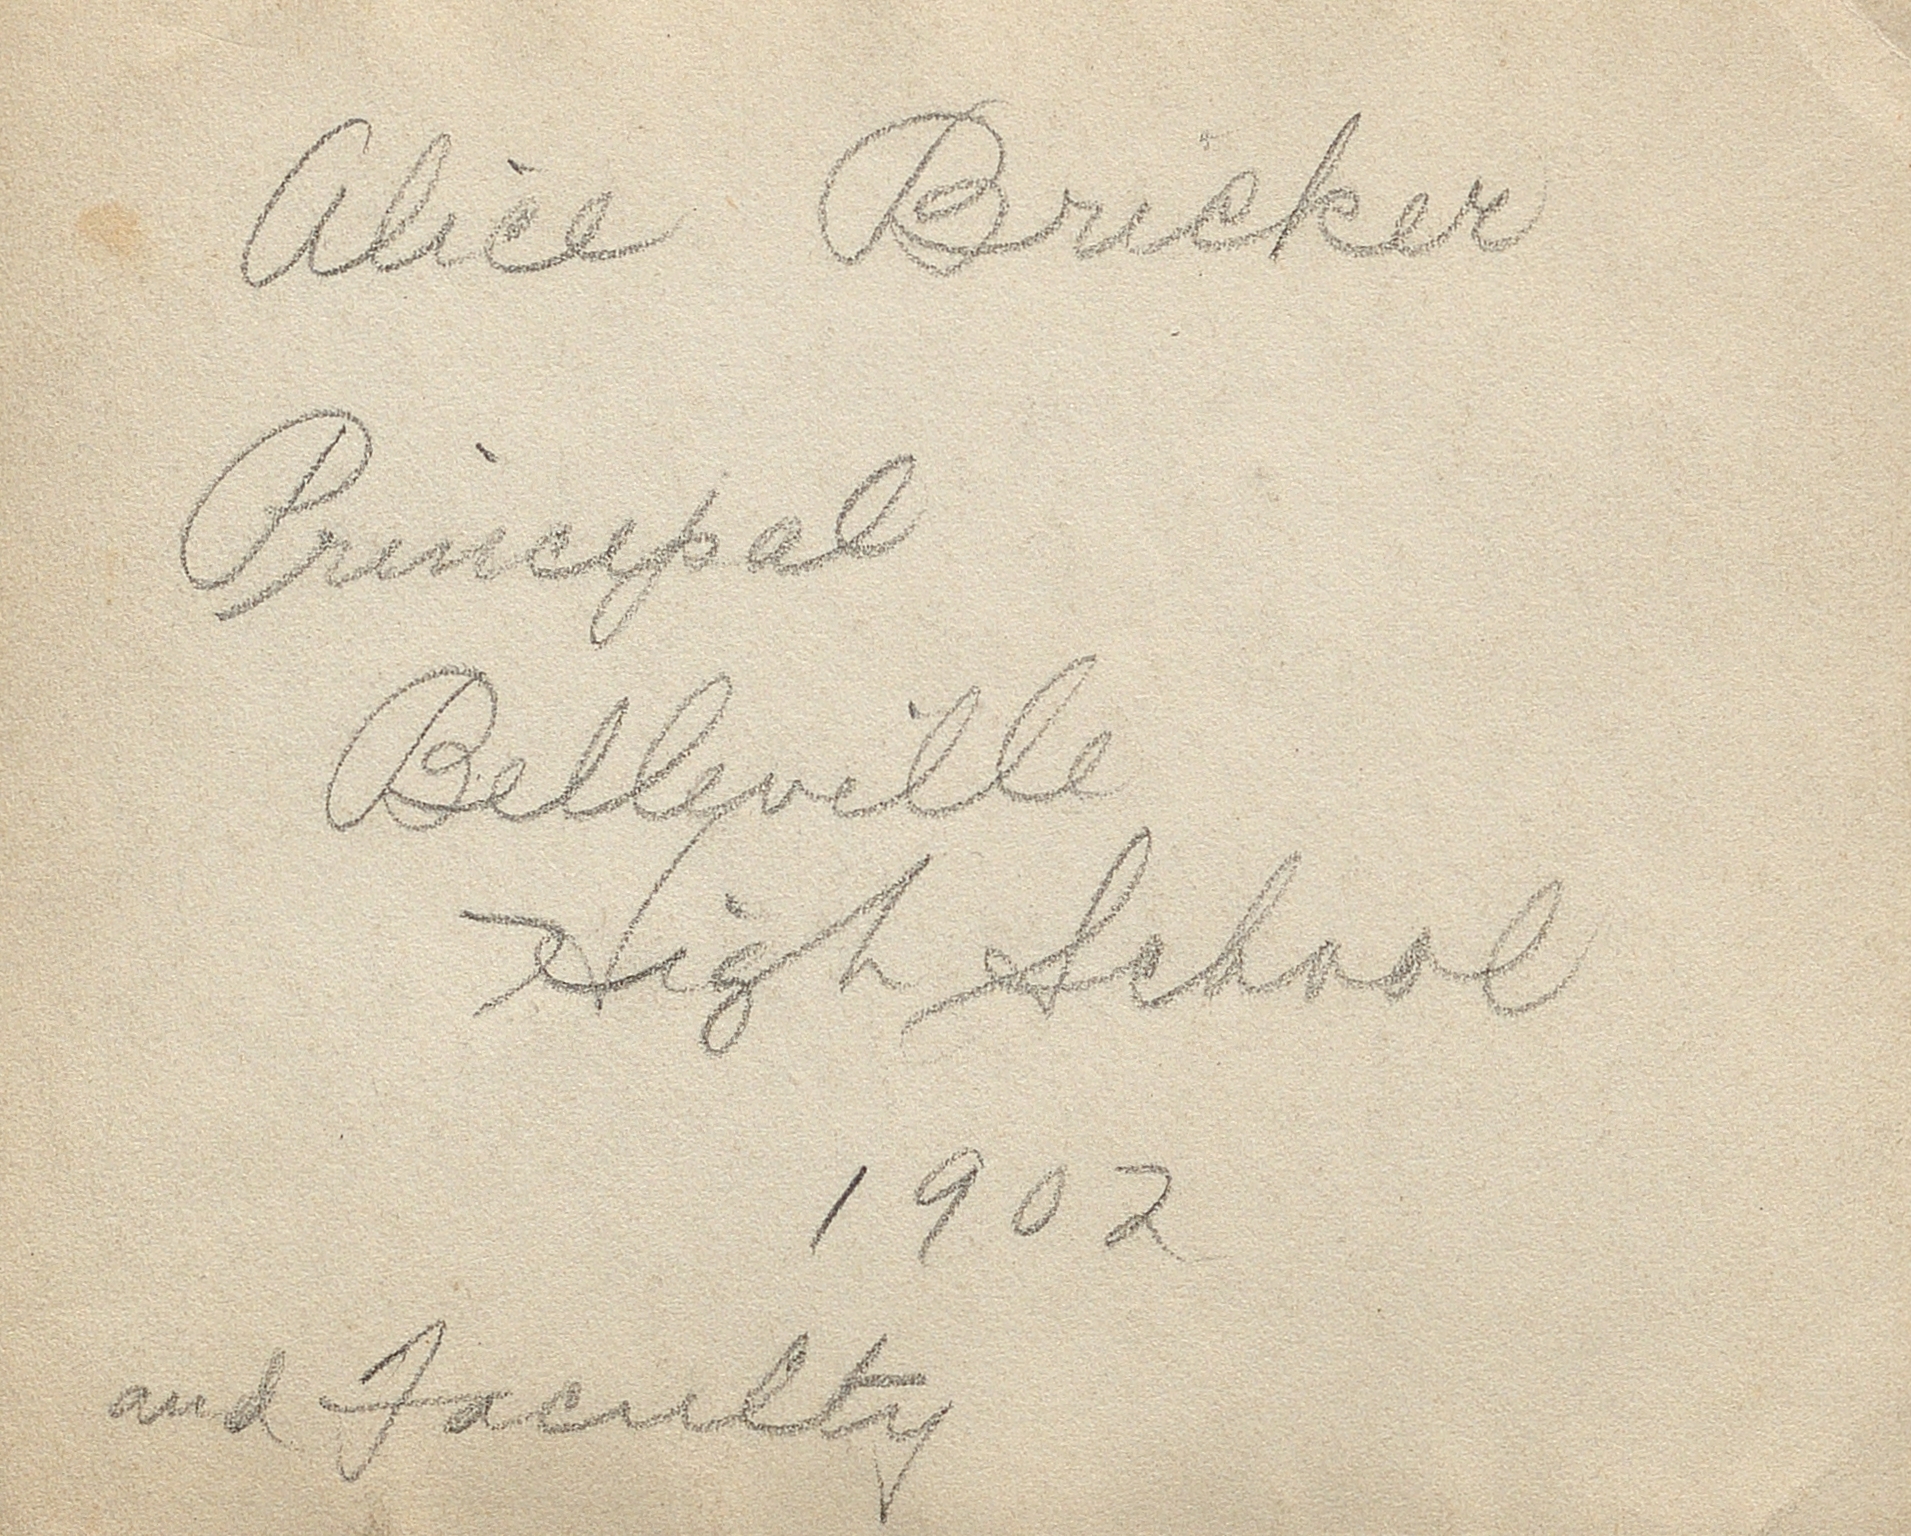 Alice Bricker
Principal
Belleville
High School
1902
and Faculty